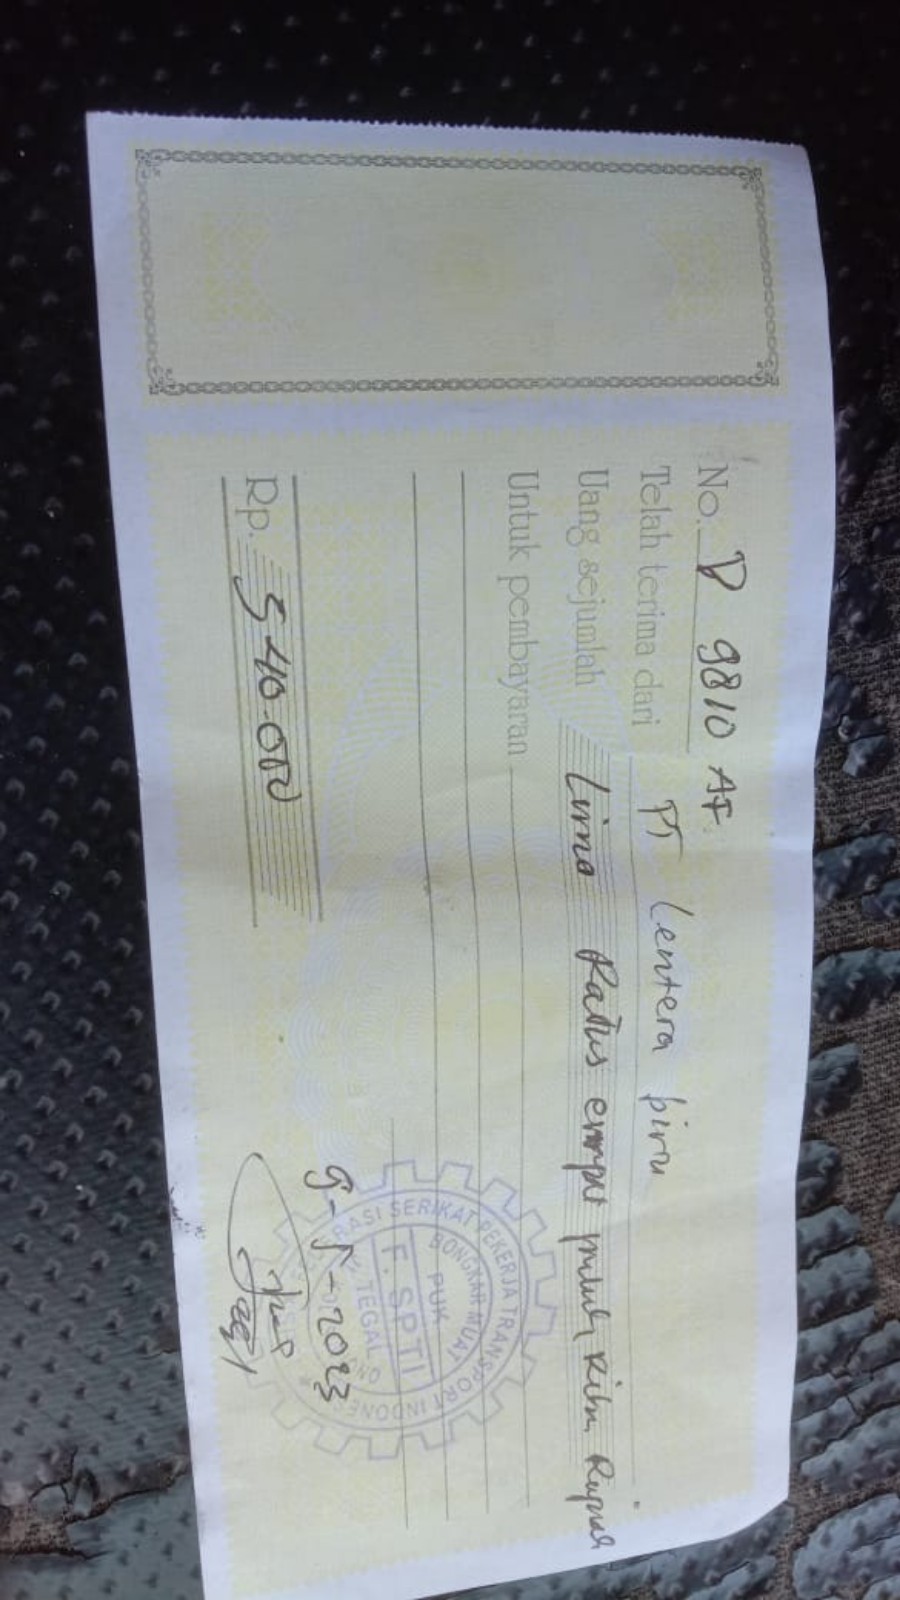 No. D 9810 AF
Telah terima dari PT Lentera biru
Uang sejumlah Lima Ratus empat puluh Ribu Rupiah
Untuk pembayaran
9-5-2023
Rp. 540.000
SERIKAT PEKERJA TRANSPORT INDONESIA
BONGKAR MUAT
PUK
F. SPTI
TEGAL